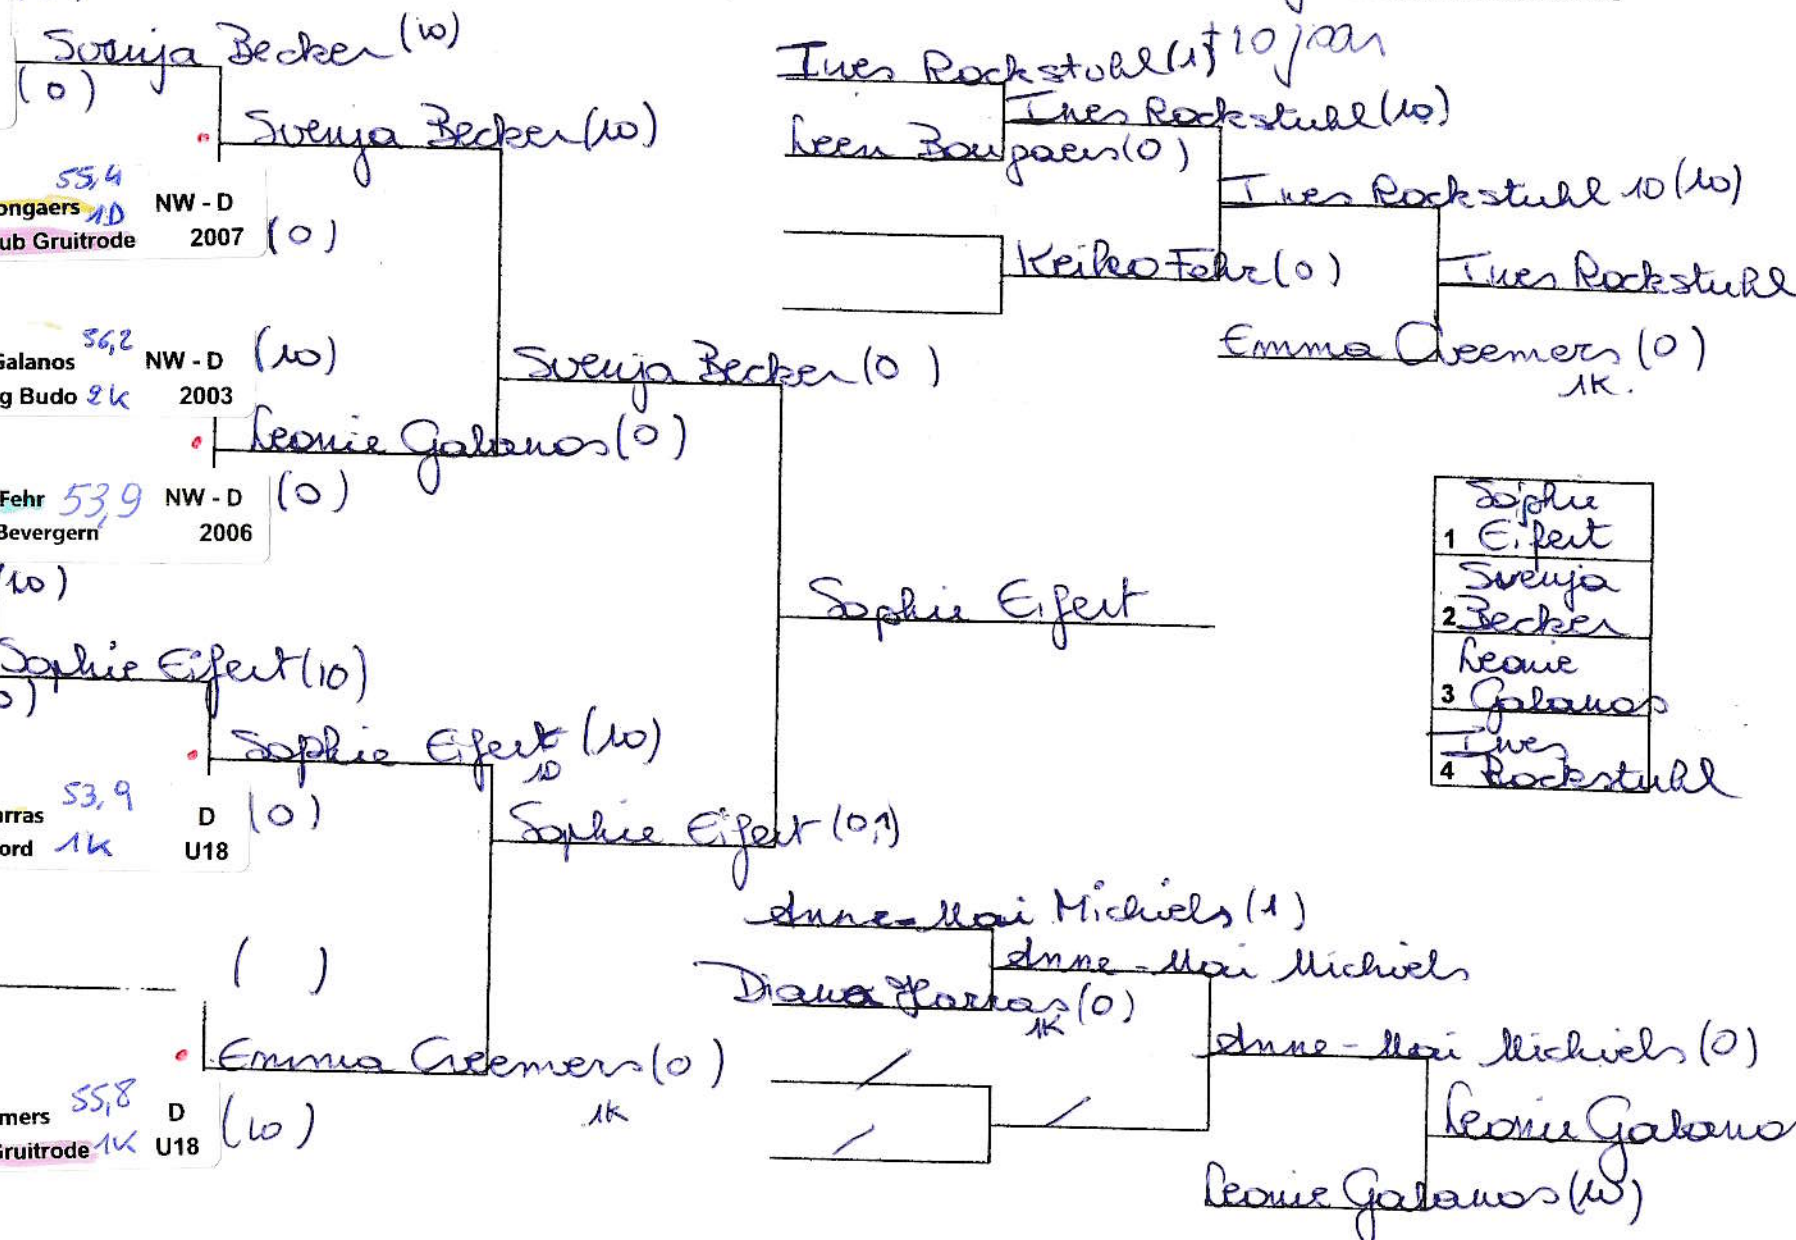 Svenja Becker (10)
(0)
Svenja Becker (10)
55,4
ongaers 1D NW - D
ub Gruitrode 2007 (0)
56,2
Galanos NW - D (10)
g Budo 2k 2003
Svenja Becker (0)
Leonie Galanos (0)
Fehr 53,9 NW - D (0)
Bevergern 2006
10)
Sophie Eifert (10)
0)
Sophie Eifert (10)
1D
53,9
arras D (0)
ord 1k U18
Sophie Eifert (0,1)
( )
Emma Creemers (0)
1K
mers 55,8 D (10)
Gruitrode 1K U18
Sophie Eifert
Ines Rockstuhl (1) +10 jaar
Ines Rockstuhl (10)
Leen Bongaers (0)
Ines Rockstuhl 10 (10)
Keiko Fehr (0)
Ines Rockstuhl
Emma Creemers (0)
1K.
Sophie
1 Eifert
Svenja
2 Becker
Leonie
3 Galanos
Ines
4 Rockstuhl
Anne-Mai Michiels (1)
Anne-Mai Michiels
Diana Harras (0)
1K
Anne-Mai Michiels (0)
Leonie Galano
Leonie Galanos (10)